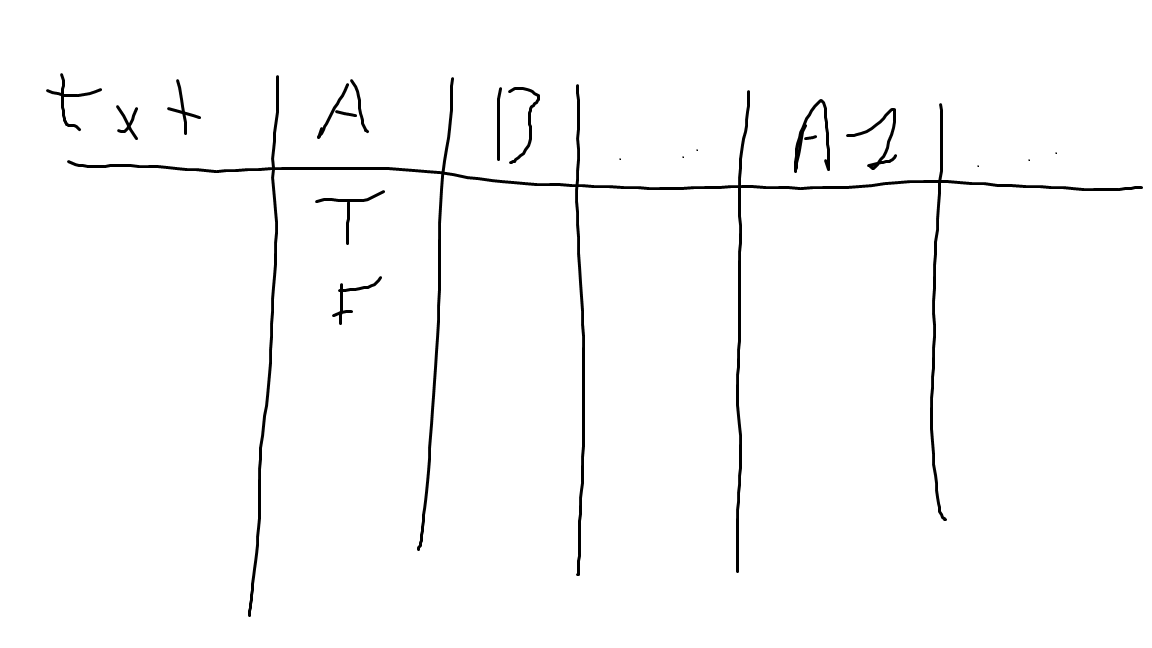 txt A B .. A1 ...
T
F